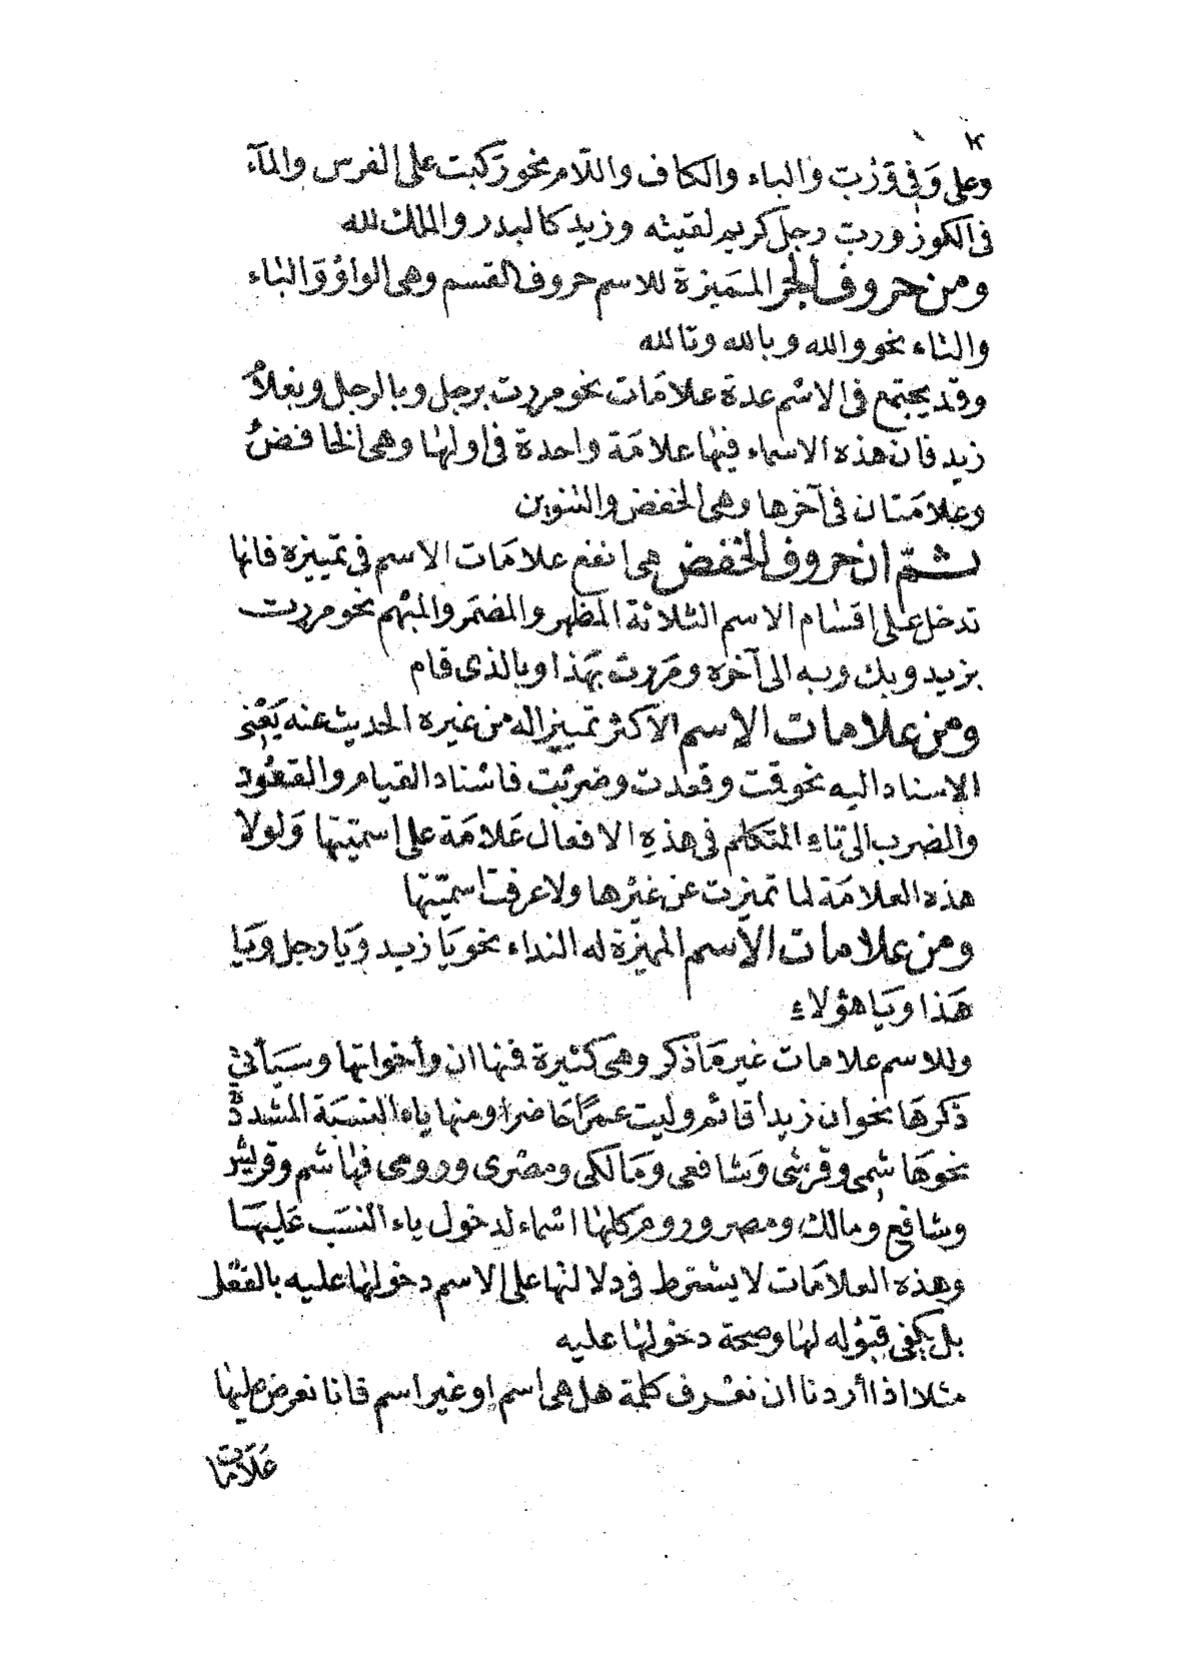 وعلى وَفى وَرُبّ والباء والكاف واللام نحو ركبت على الفرس والمآء
فى الكوز وربّ رجل كريم لقيته وزيد كالبدر والملك لله
ومن حروف الجر المَميزة للاسم حروف القسم وهى الواو وَالباء
والتاء نحو والله وبالله وتالله
وقد يجتمع فى الاسم عدة علامَات نحو مررت برجل وبالرجل وبغلام
زيد فان هذه الاسماء فيها علامَة واحدة فى اولها وهى الخافض
وعلامَتان فى آخرها وهى الخفض والتنوين
ثمّ ان حروف الخفض هى انفع علامَات الاسم فى تمييزه فانها
تدخل على اقسَام الاسم الثلاثة المظهر والمضمَر والمبْهم نحو مررت
بزيد وبك وبه الى آخره ومَررت بهَذا وبالذى قام
ومن علامات الاسم الآكثر تمييزا له من غيره الحديث عنه يَعْنى
الاسناد اليه نحو قمت وقعدت وضرَبْت فاسْناد القيام والقعُود
والضرب الى تاءِ المتكلم فى هذهِ الافعال عَلامَة على اسميّتها وَلولا
هذه العلامَة لما تميزت عن غيْرها ولا عرفت اسميّتها
ومن علامات الاسم المميزّة له النداء نحو يَا زيد وَيَا رجل وَيَا
هَذا ويَا هؤلاءِ
وللاسم علامات غير مَا ذكر وهى كثيرة فمنها ان وأخواتها وسَيَأتى
ذكرهَا نحو ان زيدا قائم وليت عمرًا حَاضرا ومنها ياء النسبَة المشددة
نحو هَاشمى وقرشى وَشافعى وَمَالكى ومصْرى ورومى فهَاشم وقريش
وشافع ومالك ومصر وروم كلها اسْماء لدخول ياء النسَب عَليهَا
وهذه العلامَات لا يشترط فى دلالتها على الاسم دخولها عليه بالفعْل
بل يكفى قبوُله لها وصحة دخولها عليه
مثلا اذا أردنا ان نعْرف كلمَة هل هى اسم او غير اسم فانا نعرض عليها
عَلاَمات